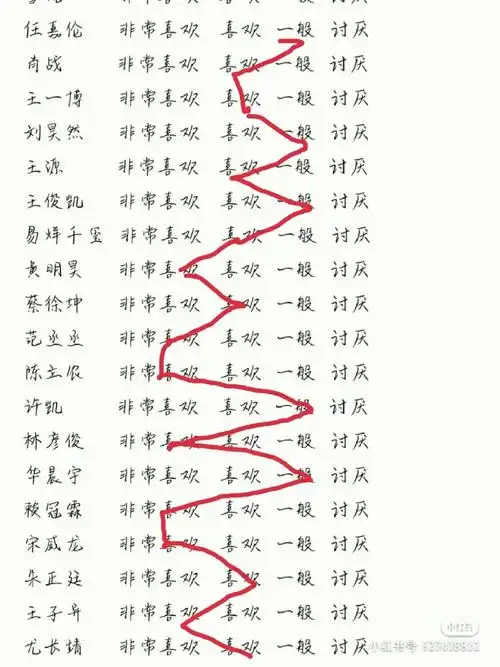 任嘉伦 非常喜欢 喜欢 一般 讨厌
肖战 非常喜欢 喜欢 一般 讨厌
王一博 非常喜欢 喜欢 一般 讨厌
刘昊然 非常喜欢 喜欢 一般 讨厌
王源 非常喜欢 喜欢 一般 讨厌
王俊凯 非常喜欢 喜欢 一般 讨厌
易烊千玺 非常喜欢 喜欢 一般 讨厌
黄明昊 非常喜欢 喜欢 一般 讨厌
蔡徐坤 非常喜欢 喜欢 一般 讨厌
范丞丞 非常喜欢 喜欢 一般 讨厌
陈立农 非常喜欢 喜欢 一般 讨厌
许凯 非常喜欢 喜欢 一般 讨厌
林彦俊 非常喜欢 喜欢 一般 讨厌
华晨宇 非常喜欢 喜欢 一般 讨厌
赖冠霖 非常喜欢 喜欢 一般 讨厌
宋威龙 非常喜欢 喜欢 一般 讨厌
朱正廷 非常喜欢 喜欢 一般 讨厌
王子异 非常喜欢 喜欢 一般 讨厌
尤长靖 非常喜欢 喜欢 一般 讨厌
小红书
小红书号